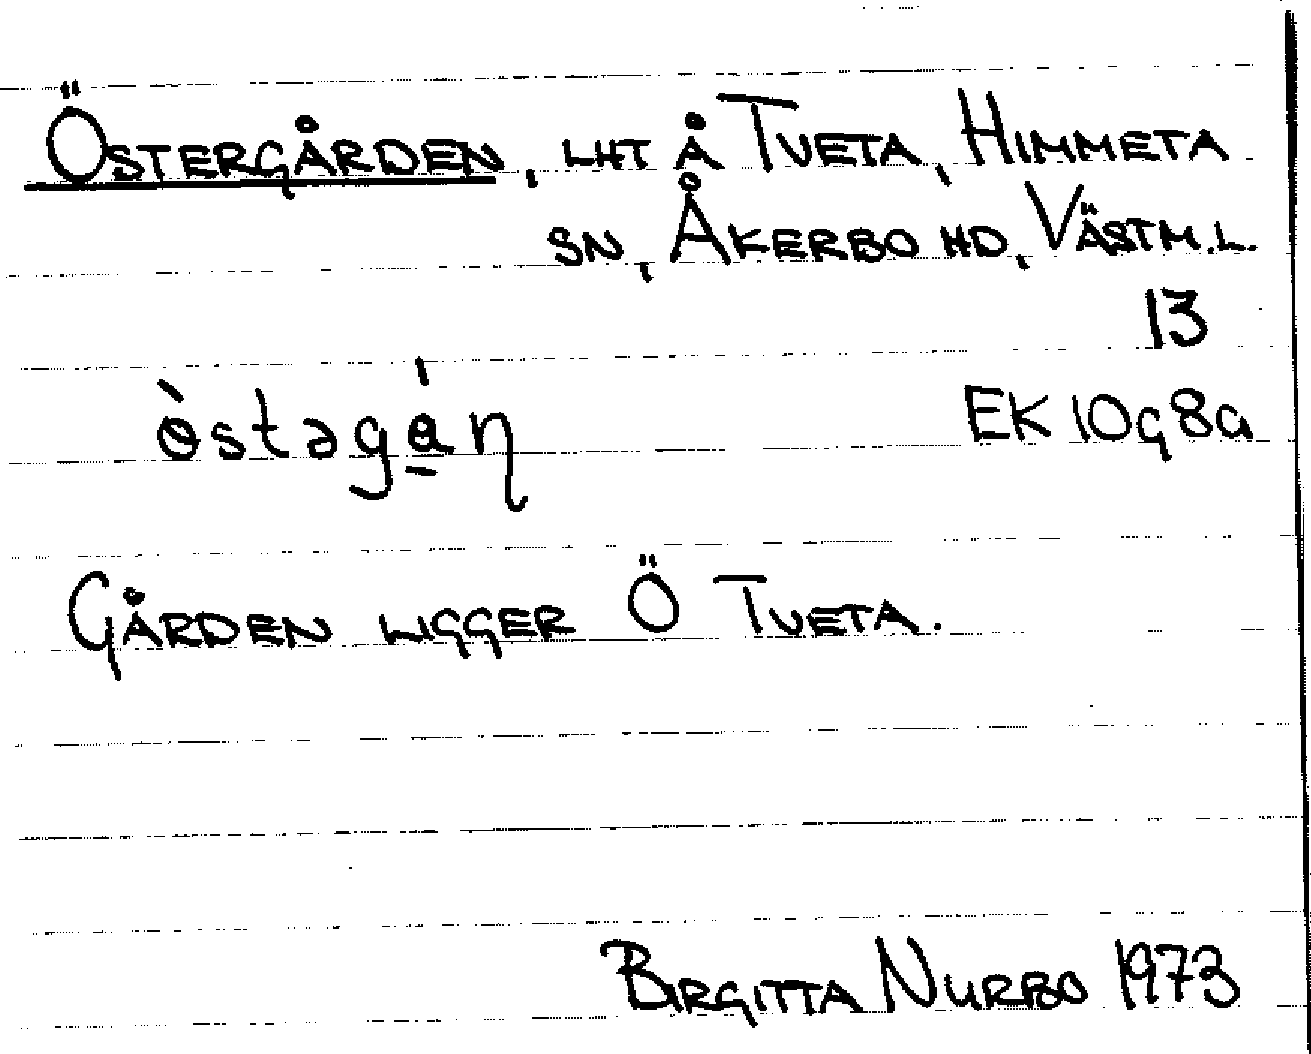 Östergården, lht å Tveta, Himmeta
sn, Åkerbo hd, Västm.l.
13
EK 10g8a
Gården ligger Ö Tveta.
Birgitta Nurbo 1973